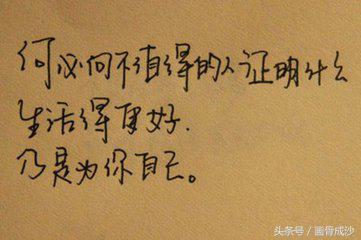 何必向不值得的人证明什么
生活得更好.
乃是为你自己。
头条号 / 画骨成沙